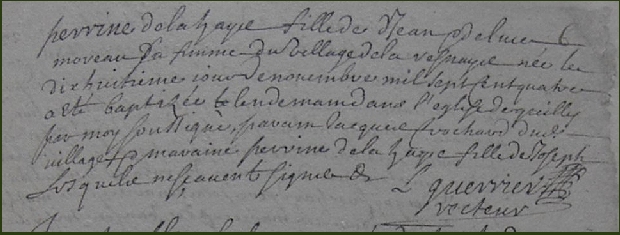 perrine de la haye fille de Jean et de luce
moreau sa femme du village de la née le
dixhuitieme iour de novembre mil sept cent quatre
a este baptizée le lendemain dans l'eglise
par moy soussigné, parain Jacques frochard dudit
village et maraine perrine de la haye fille de Joseph
lesquels ne scavent signer
guerrier
recteur